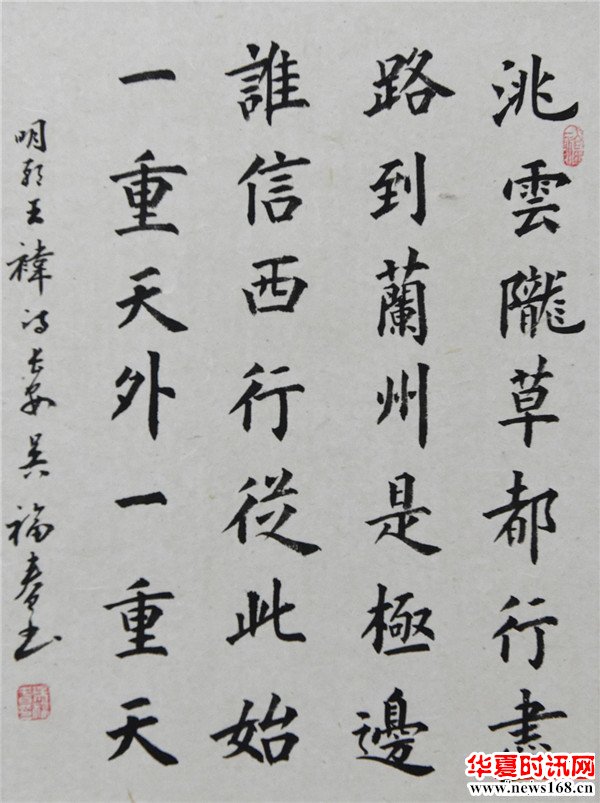 洮雲隴草都行盡
路到蘭州是極邊
誰信西行從此始
一重天外一重天
明朝王禕詩長安吳福春书
华夏时讯网
www.news168.cn